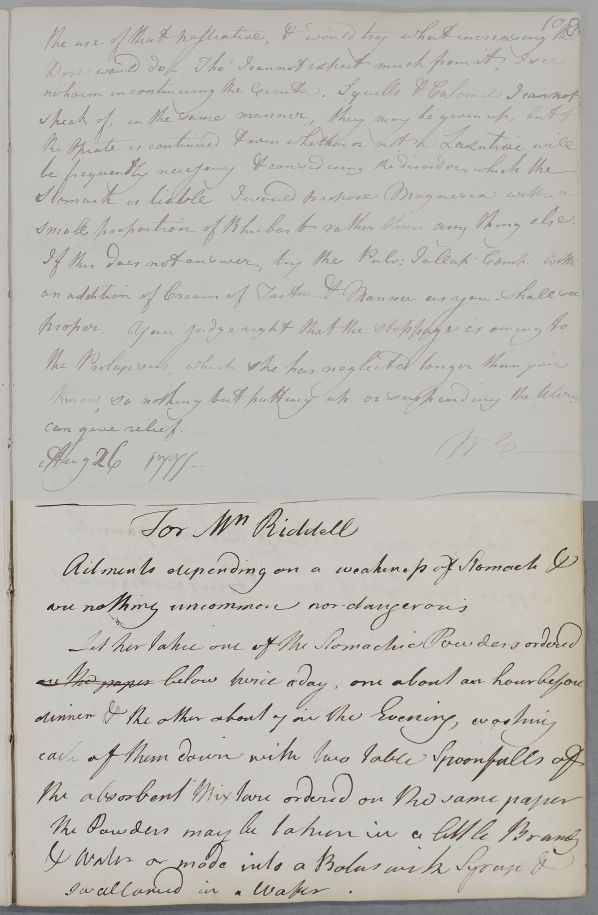 the use of that Palliative, & would try what increasing the
Dose would do. Tho' I cannot expect much from it, I see
no harm in continuing the Cicuta. Squills & Calomel I cannot
speak of, in the same manner, they may be given up, but if
the Opiate is continued & even whether or not a Laxative will
be frequently necessary & considering the disorders which the
Stomach is liable I would propose Magnesia with a
small proportion of Rhubarb rather than any thing else
If this does not answer, try the Pulv: Jallap: Comp: with
an addition of Cream of Tartar & Manna as you shall see
proper. You judge right that the stoppage is owing to
the Prolapsus, which she has neglected longer than you
know, so nothing but putting up or suspending the Uterus
can give relief.
Aug 26 W C
For Mrs Riddell
Ailments depending on a weakness of Stomach &
are nothing uncommon nor dangerous
Let her take one of the Stomachic Powders ordered
on the paper below twice a day, one about an hour before
dinner & the other about 7 in the Evening, washing
each of them down with two table Spoonfulls of
the absorbent Mixture ordered on the same paper
the Powders may be taken in a little Brandy
& Water or made into a Bolus with Syrup &
swallowed in a Wafer.